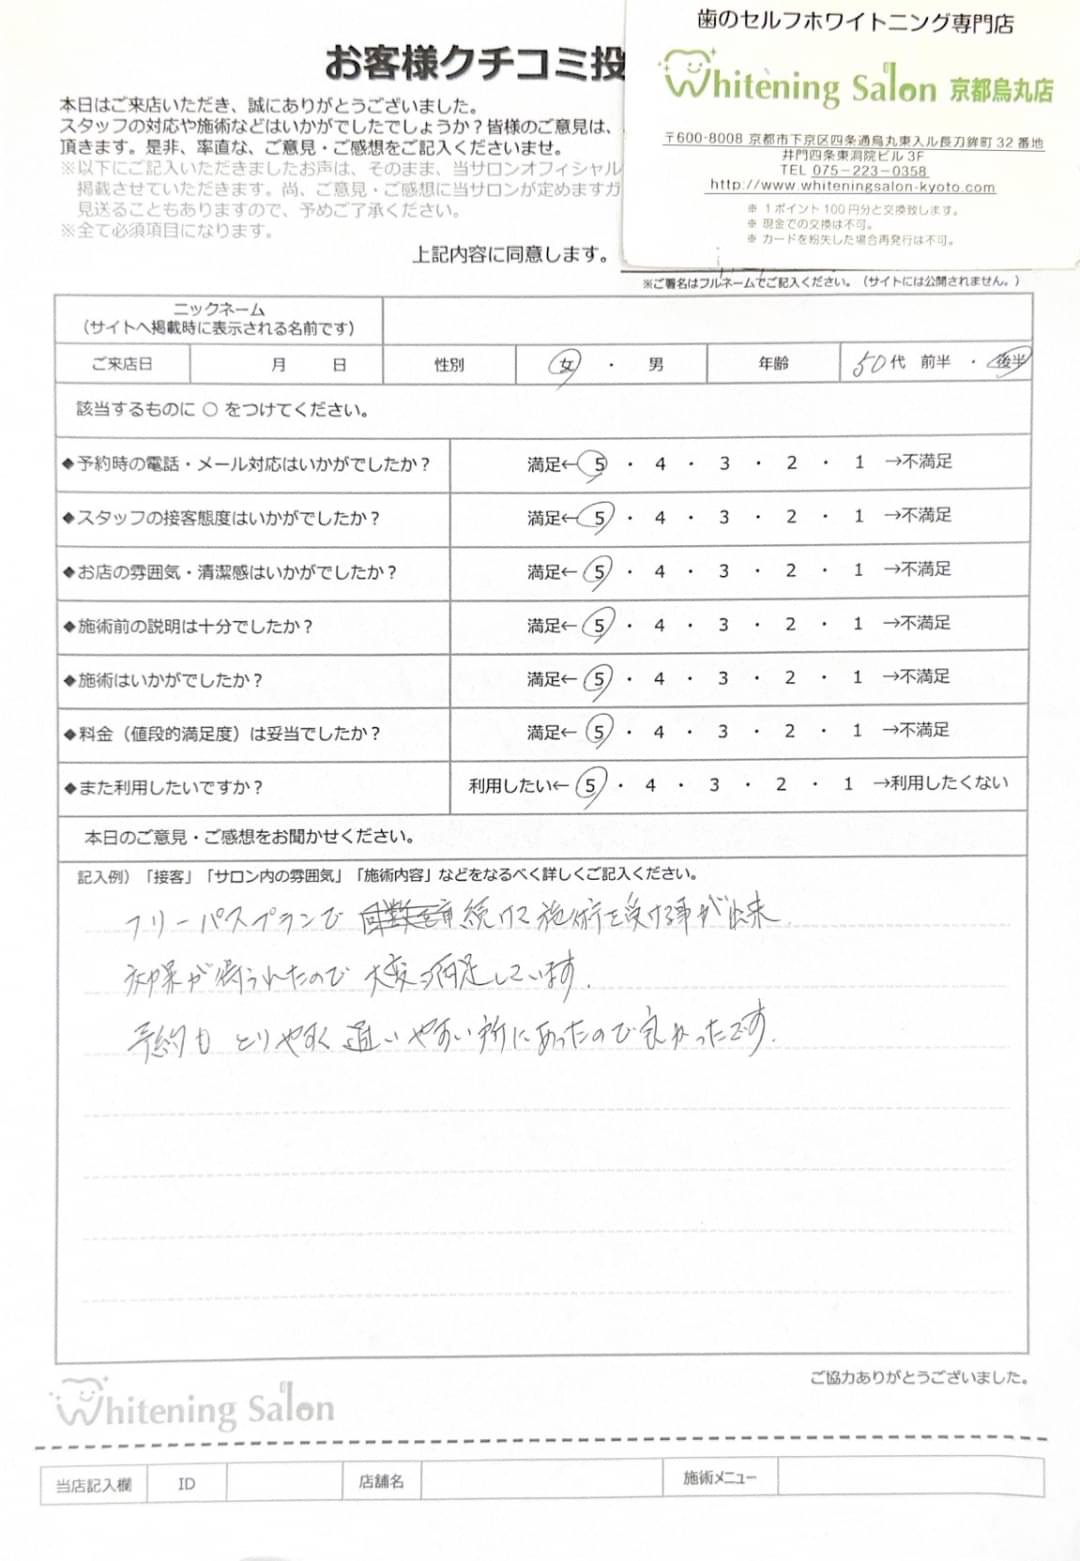 歯のセルフホワイトニング専門店
Whitening Salon 京都烏丸店
〒600-8008 京都市下京区四条通烏丸東入ル長刀鉾町32番地
井門四条東洞院ビル3F
TEL 075-223-0358
http://www.whiteningsalon-kyoto.com
※ 1ポイント100円分と交換致します。
※ 現金での交換は不可。
※ カードを紛失した場合再発行は不可。
お客様クチコミ投
本日はご来店いただき、誠にありがとうございました。
スタッフの対応や施術などはいかがでしたでしょうか？皆様のご意見は、
頂きます。是非、率直な、ご意見・ご感想をご記入くださいませ。
※以下にご記入いただきましたお声は、そのまま、当サロンオフィシャル
掲載させていただきます。尚、ご意見・ご感想に当サロンが定めますガ
見送ることもありますので、予めご了承ください。
※全て必須項目になります。
上記内容に同意します。
※ご署名はフルネームでご記入ください。（サイトには公開されません。）
ニックネーム
（サイトへ掲載時に表示される名前です）
ご来店日 月 日 性別 女 ・ 男 年齢 50代 前半 ・ 後半
該当するものに ○ をつけてください。
◆予約時の電話・メール対応はいかがでしたか？ 満足← 5 ・ 4 ・ 3 ・ 2 ・ 1 →不満足
◆スタッフの接客態度はいかがでしたか？ 満足← 5 ・ 4 ・ 3 ・ 2 ・ 1 →不満足
◆お店の雰囲気・清潔感はいかがでしたか？ 満足← 5 ・ 4 ・ 3 ・ 2 ・ 1 →不満足
◆施術前の説明は十分でしたか？ 満足← 5 ・ 4 ・ 3 ・ 2 ・ 1 →不満足
◆施術はいかがでしたか？ 満足← 5 ・ 4 ・ 3 ・ 2 ・ 1 →不満足
◆料金（値段的満足度）は妥当でしたか？ 満足← 5 ・ 4 ・ 3 ・ 2 ・ 1 →不満足
◆また利用したいですか？ 利用したい← 5 ・ 4 ・ 3 ・ 2 ・ 1 →利用したくない
本日のご意見・ご感想をお聞かせください。
記入例）「接客」「サロン内の雰囲気」「施術内容」などをなるべく詳しくご記入ください。
フリーパスプランで 続けて施術を受ける事が出来
効果が得られたので 大変満足しています.
予約も とりやすく 通いやすい所にあったので良かったです.
ご協力ありがとうございました。
Whitening Salon
当店記入欄 ID 店舗名 施術メニュー